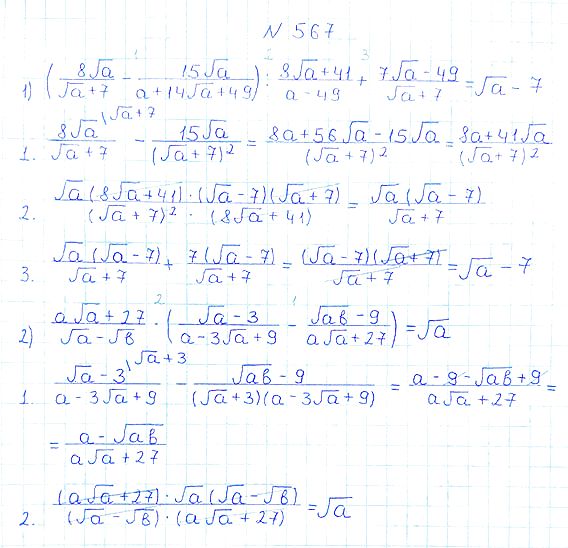 N 567
1) (8√a/(√a+7) - 15√a/(a+14√a+49)) : (8√a+41)/(a-49) + (7√a-49)/(√a+7) = √a - 7
1. 8√a\√a+7/(√a+7) - 15√a/(√a+7)² = (8a+56√a-15√a)/(√a+7)² = (8a+41√a)/(√a+7)²
2. √a(8√a+41)·(√a-7)(√a+7)/((√a+7)²·(8√a+41)) = √a(√a-7)/(√a+7)
3. √a(√a-7)/(√a+7) + 7(√a-7)/(√a+7) = (√a-7)(√a+7)/(√a+7) = √a - 7
2) (a√a+27)/(√a-√в) · ((√a-3)/(a-3√a+9) - (√aв-9)/(a√a+27)) = √a
1. (√a-3)\√a+3/(a-3√a+9) - (√aв-9)/((√a+3)(a-3√a+9)) = (a-9-√aв+9)/(a√a+27) =
= (a-√aв)/(a√a+27)
2. (a√a+27)·√a(√a-√в)/((√a-√в)·(a√a+27)) = √a